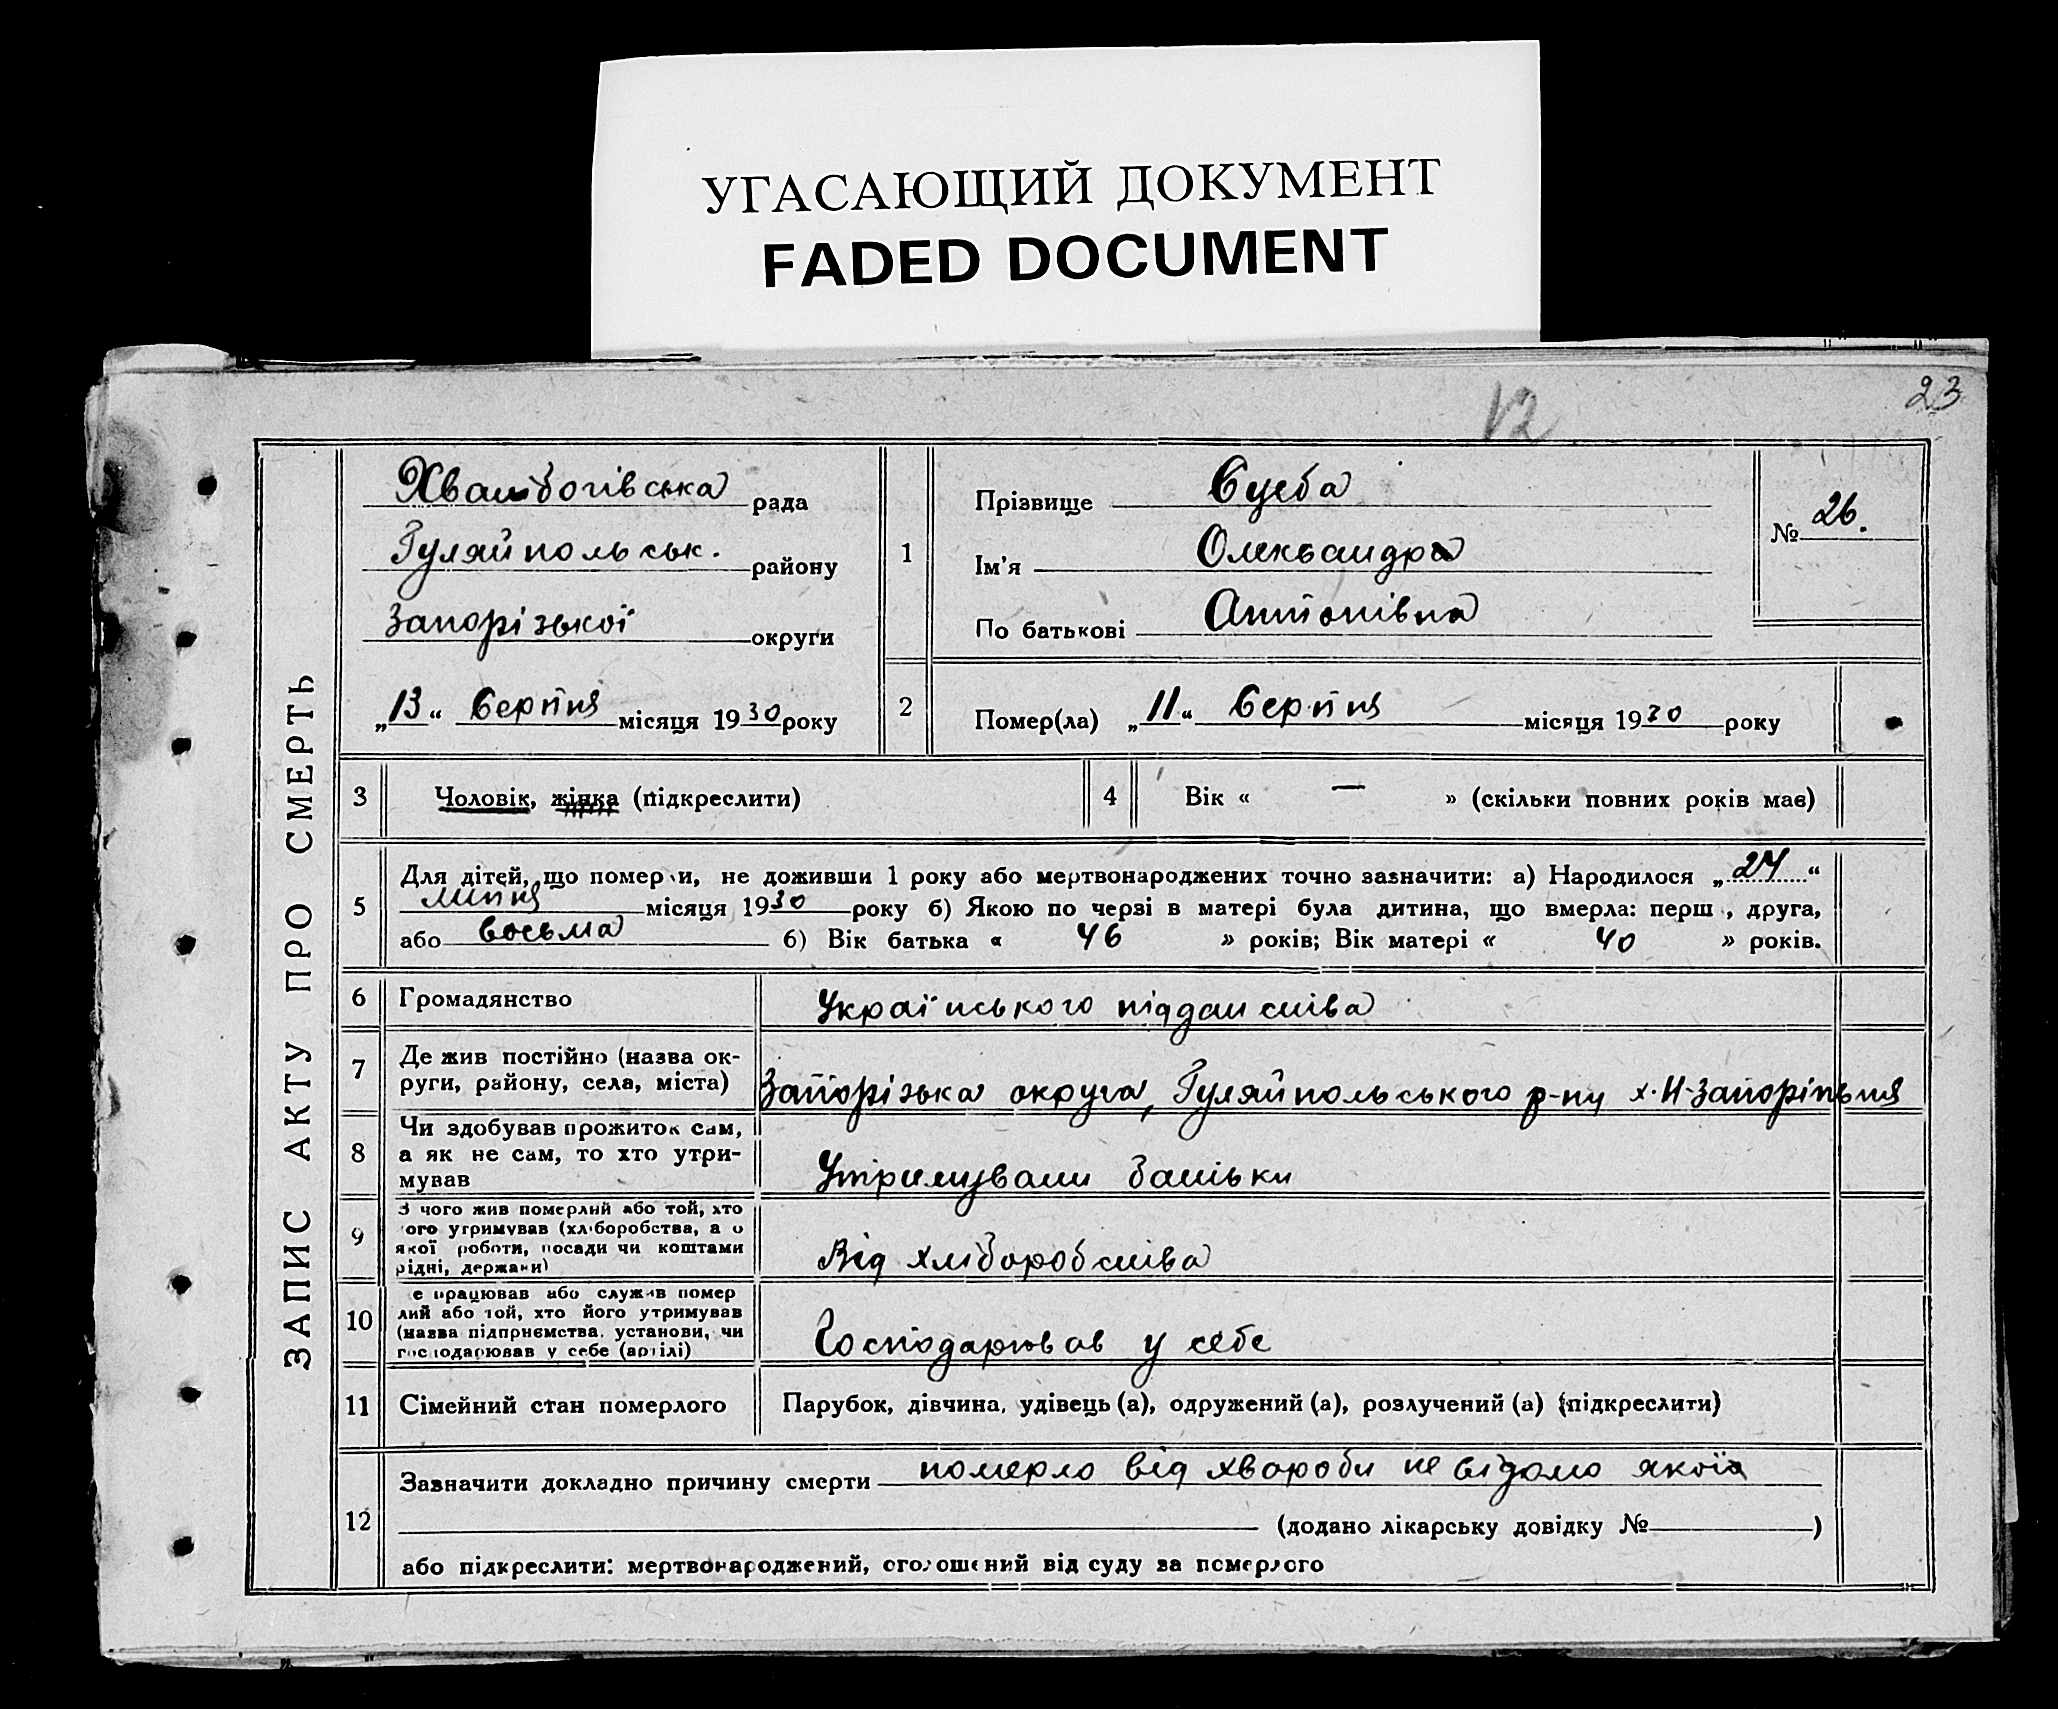 УГАСАЮЩИЙ ДОКУМЕНТ
FADED DOCUMENT
23
12
ЗАПИС АКТУ ПРО СМЕРТЬ
Хвалибогівська рада
Гуляйпольськ. району
Запорізької округи
„13“ Серпня місяця 1930 року
1
Прізвище
Ім'я Олександра
По батькові Антонівна
№ 26.
2
Помер(ла) „11“ Серпня місяця 1930 року
3 Чоловік, жінка (підкреслити)
4 Вік « — » (скільки повних років має)
5
Для дітей, що померли, не доживши 1 року або мертвонароджених точно зазначити: а) Народилося „24“
липня місяця 1930 року б) Якою по черзі в матері була дитина, що вмерла: перш , друга,
або восьма б) Вік батька « 46 » років; Вік матері « 40 » років.
6 Громадянство Українського підданства
7
Де жив постійно (назва ок-
руги, району, села, міста)
Запорізька округа, Гуляйпольського р-ну х. Н-Запоріжжя
8
Чи здобував прожиток сам,
а як не сам, то хто утри-
мував
Утримували батьки
9
З чого жив померлий або той, хто
ого утримував (хліборобства, а о
якої роботи, посади чи коштами
рідні, держави)
Від хліборобства
10
е працював або служив помер
лий або той, хто його утримував
(назва підприємства, установи, чи
господарював у себе (артілі)
Господарював у себе
11 Сімейний стан померлого Парубок, дівчина, удівець (а), одружений (а), розлучений (а) (підкреслити)
12
Зазначити докладно причину смерти померло від хвороби не відомо якої
(додано лікарську довідку № )
або підкреслити: мертвонароджений, оголошений від суду за померлого